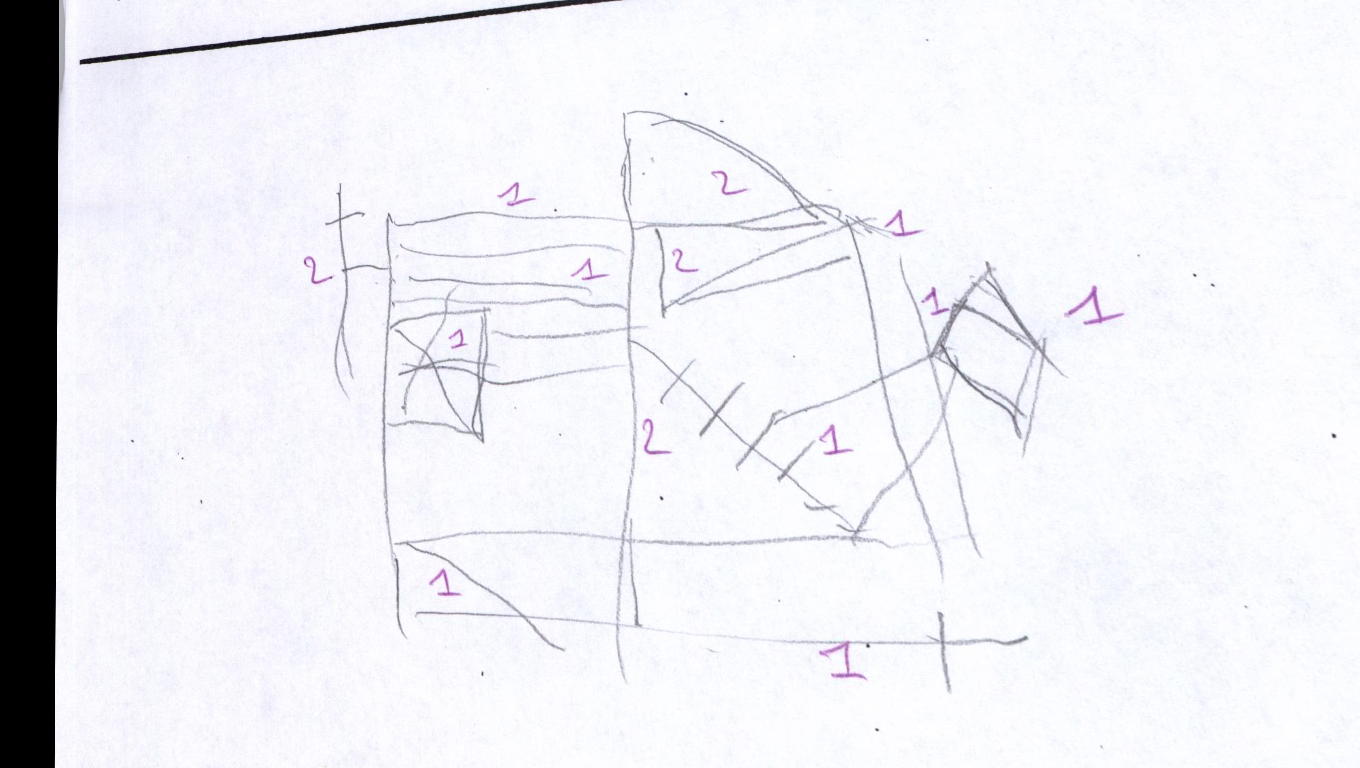 1
2
1
2
1
2
1
1
1
1
2
1
1
1